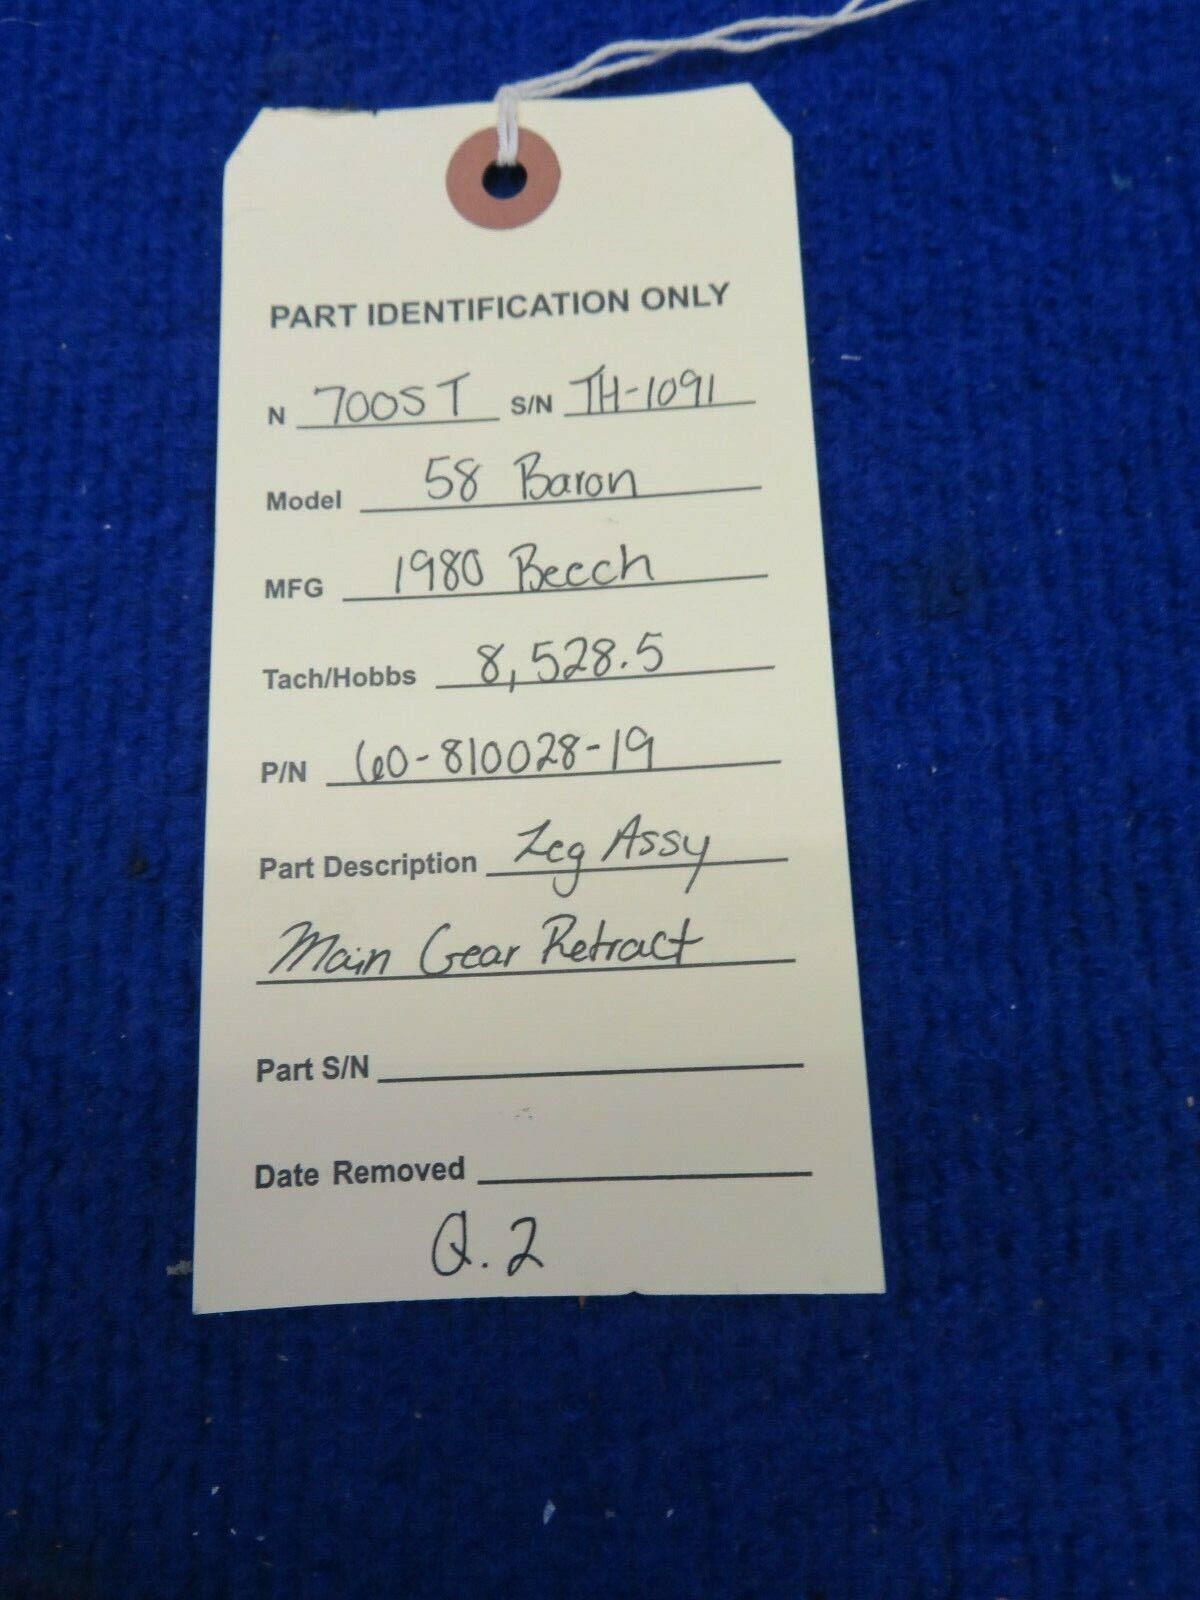 PART IDENTIFICATION ONLY
N 700ST S/N TH-1091
Model 58 Baron
MFG 1980 Beech
Tach/Hobbs 8,528.5
P/N 60-810028-19
Part Description Leg Assy
Main Gear Retract
Part S/N
Date Removed
Q.2